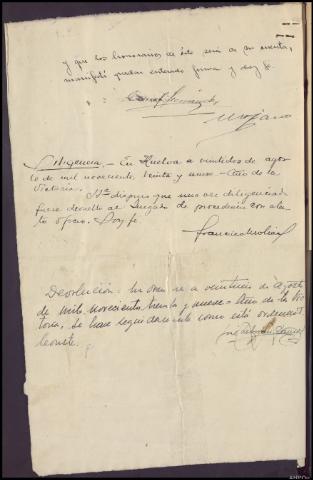 y que los honorarios de éste será de su cuenta,
manifestó quedar enterado firma y doy fe.
Diligencia = En Huelva a veintidos de agos
to de mil novecientos treinta y nueve = Año de la
Victoria. Sª dispuso que una vez diligenciado
fuese devuelto al Juzgado de procedencia con aten
to oficio. Doy fe.
Francisco Molina
Devolución = a veintitres de Agosto
de mil novecientos treinta y nueve = Año de la Vic
toria, se hace seguidamente como está ordenado